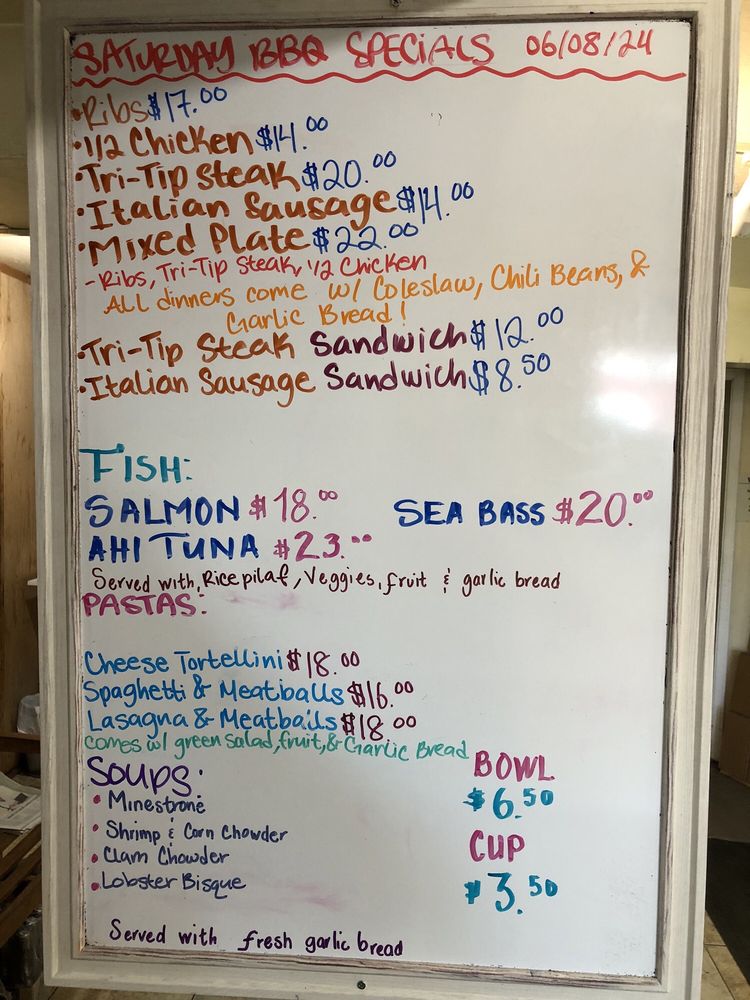 SATURDAY BBQ SPECIALS 06/08/24
•Ribs $17.00
•1/2 Chicken $14.00
•Tri-Tip Steak $20.00
•Italian Sausage $14.00
•Mixed Plate $22.00
-Ribs, Tri-Tip Steak, 1/2 Chicken
ALL dinners come w/ Coleslaw, Chili Beans, &
Garlic Bread!
•Tri-Tip Steak Sandwich $12.00
•Italian Sausage Sandwich $8.50
FISH:
SALMON $18.00 SEA BASS $20.00
AHI TUNA $23.00
Served with, Rice pilaf, Veggies, fruit & garlic bread
PASTAS:
Cheese Tortellini $18.00
Spaghetti & Meatballs $16.00
Lasagna & Meatballs $18.00
comes w/ green salad, fruit, & Garlic Bread
SOUPS:
• Minestrone
• Shrimp & Corn Chowder
• Clam Chowder
• Lobster Bisque
BOWL
$6.50
CUP
$3.50
Served with fresh garlic bread